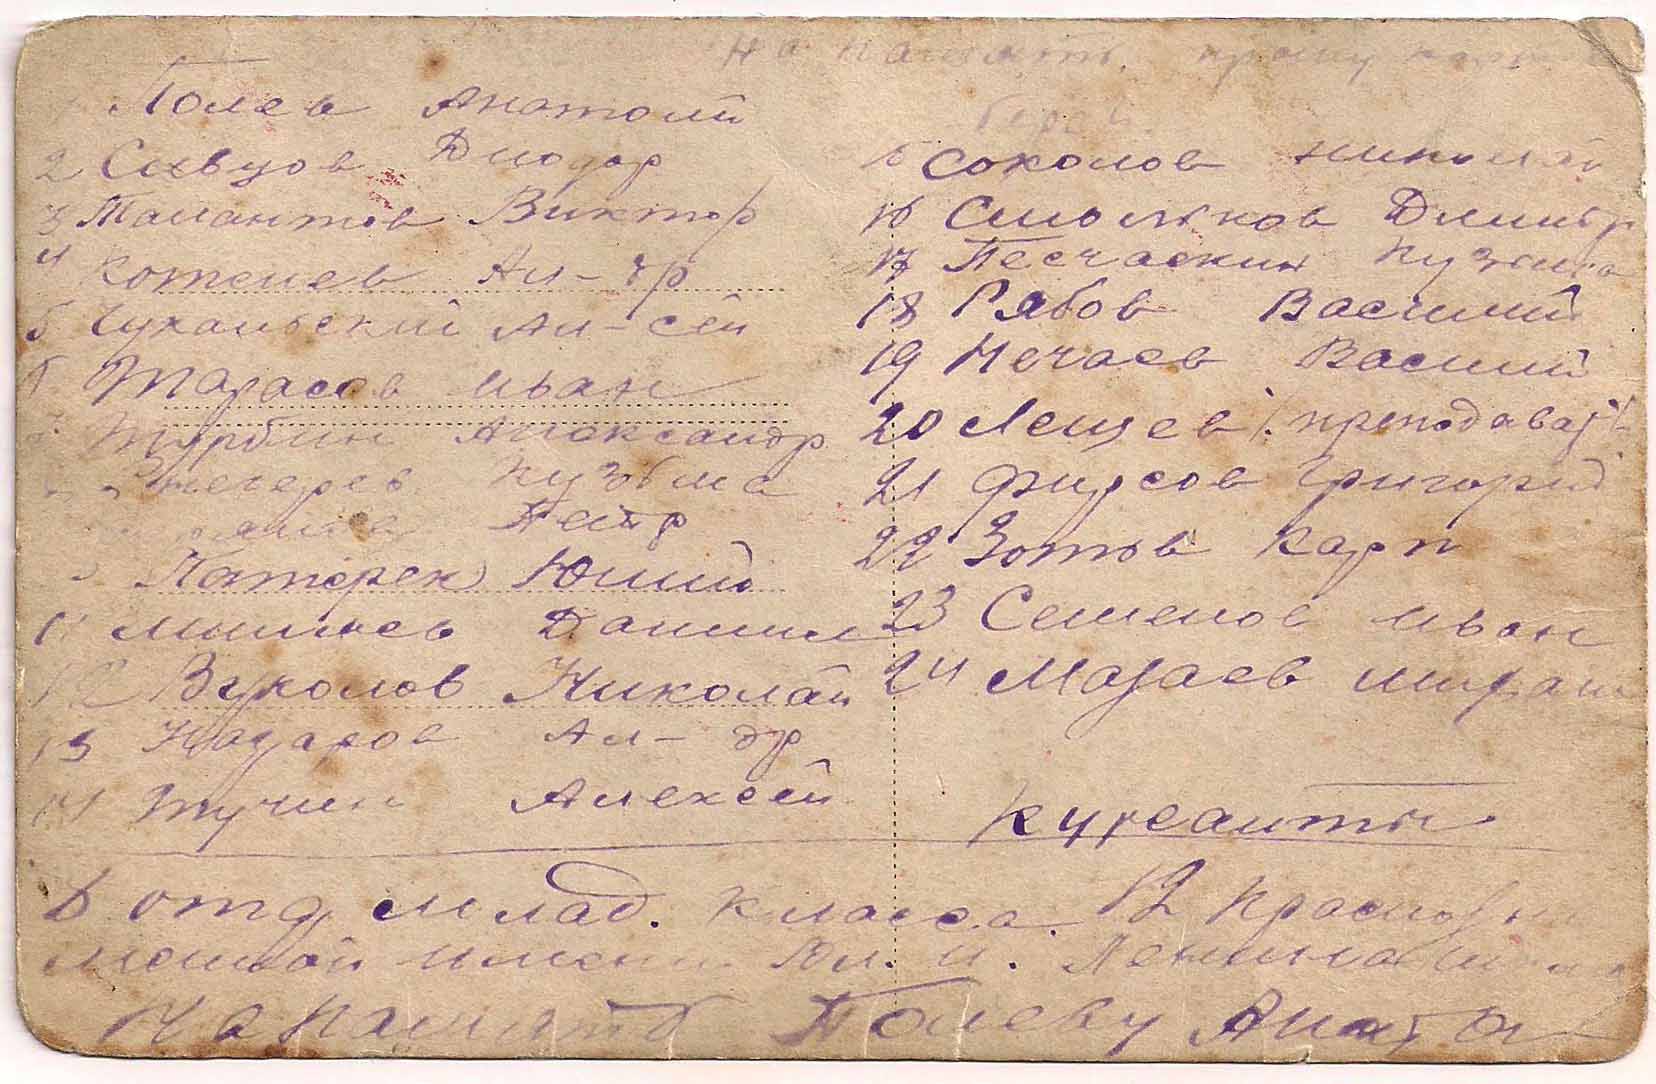 На память. прошу
Полев Анатолий
2 Сивцов Диодор
3 Мамантов Виктор
4 Котенев Ал-др
5 Чухальский Ал-сей
Тарасов Иван
Турбин Александр
Кузьма
Петр
Патерек Юлий
11 Данил
12 Вуколов Николай
13 Назаров Ал-др
14 Тучин Алексей
15 Соколов Николай
16 Смольков Дмитр
17 Песчаскин Кузьма
18 Рябов Василий
19 Нечаев Василий
20 Лещев (преподават)
21 Фирсов Григорий
22 Зотов Карп
23 Семенов Иван
24 Мазаев
Курсанты
6 отд. млад. класса. 12 Краснозна
менной имени Вл. И. Ленина
На память Полеву